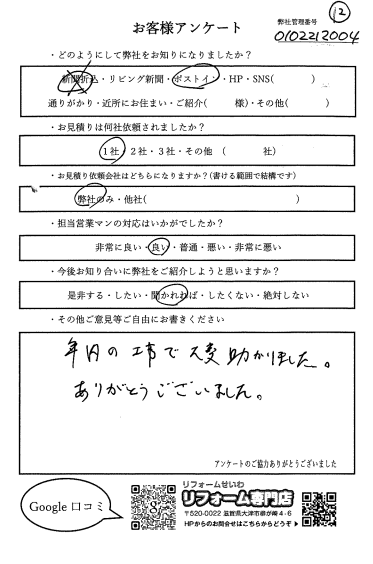 ⑫
お客様アンケート
弊社管理番号
0102213004
・どのようにして弊社をお知りになりましたか？
新聞折込・リビング新聞・ポストイン・HP・SNS(　　　　)
通りがかり・近所にお住まい・ご紹介(　　　様)・その他(　　　　)
・お見積りは何社依頼されましたか？
1社・2社・3社・その他　(　　　　社)
・お見積り依頼会社はどちらになりますか？(書ける範囲で結構です)
弊社のみ・他社(　　　　　　　　　　　　　　　)
・担当営業マンの対応はいかがでしたか？
非常に良い・良い・普通・悪い・非常に悪い
・今後お知り合いに弊社をご紹介しようと思いますか？
是非する・したい・聞かれれば・したくない・絶対しない
・その他ご意見等ご自由にお書きください
年内の工事で大変助かりました。
ありがとうございました。
アンケートのご協力ありがとうございました
Google 口コミ
リフォームせいわ
リフォーム専門店
〒520-0022 滋賀県大津市柳が崎4-6
HPからのお問合せはこちらからどうぞ ▶